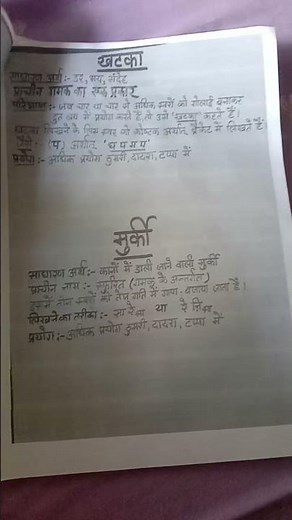 खटका
साधारण अर्थ:- डर, भय, संदेह
प्राचीन गमक का एक प्रकार
परिभाषा:- जब चार या चार से अधिक स्वरों को गोलाई बनाकर
द्रुत लय में प्रयोग करते हैं, तो उसे 'खटका' कहते हैं।
खटका लिखने के लिए स्वर को कोष्ठक अर्थात् ब्रैकेट में लिखते हैं
जैसे - (प) अर्थात्, 'ध प म प'
प्रयोग:- अधिक प्रयोग ठुमरी, दादरा, टप्पा में
मुर्की
साधारण अर्थ:- कानों में डाली जाने वाली मुर्की
प्राचीन नाम:- स्फुरित (गमक के अन्तर्गत)
इसमें तीन स्वरों को द्रुत गति में गाया-बजाया जाता है।
लिखने का तरीका:- सा रे या रे नि
प्रयोग:- अधिक प्रयोग ठुमरी, दादरा, टप्पा में